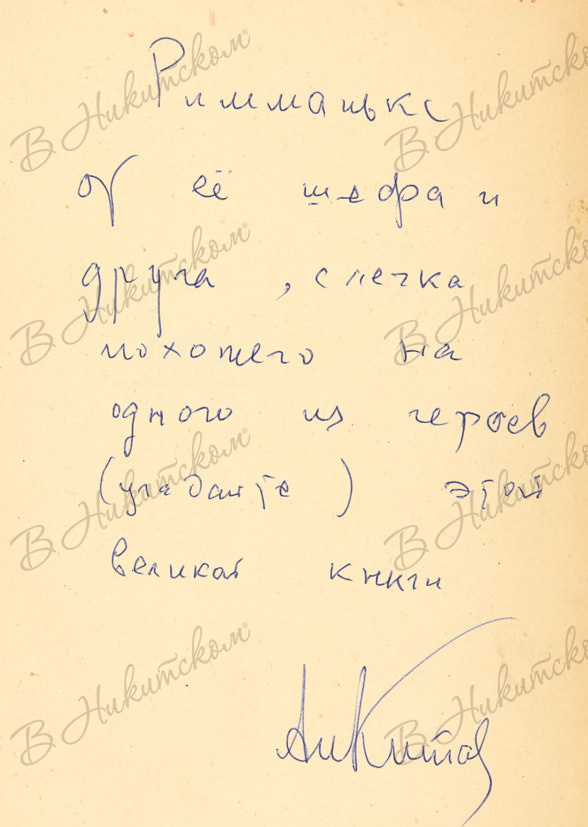 Римманьке
от её шефа и
друга, слегка
похожего на
одного из героев
(угадайте) этой
великой книги
АнКитов
В Никитском
В Никитском
В Никитском
В Никитском
В Никитском
В Никитском
В Никитском
В Никитском